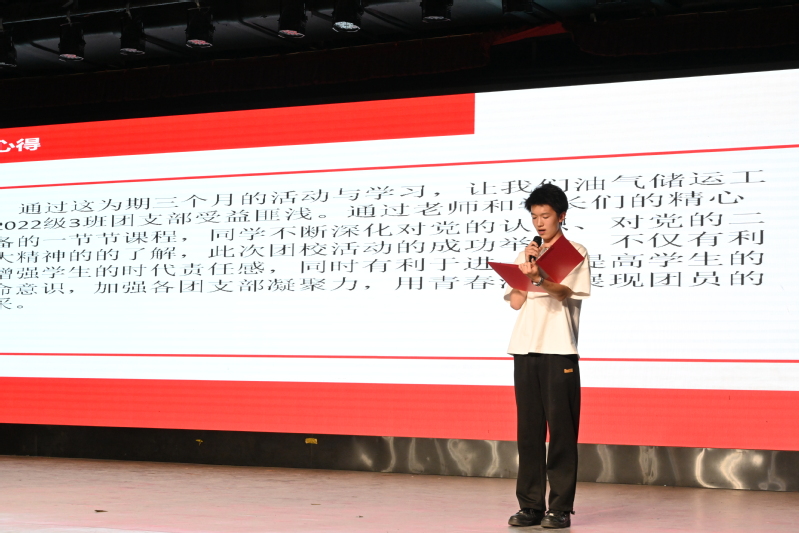 心得
通过这为期三个月的活动与学习，让我们油气储运工
2022级3班团支部受益匪浅。通过老师和 长们的精心
备的一节节课程，同学不断深化对党的认 、对党的二
大精神的的了解，此次团校活动的成功举 不仅有利
增强学生的时代责任感，同时有利于进 是高学生的
命意识，加强各团支部凝聚力，用青春 展现团员的
采。